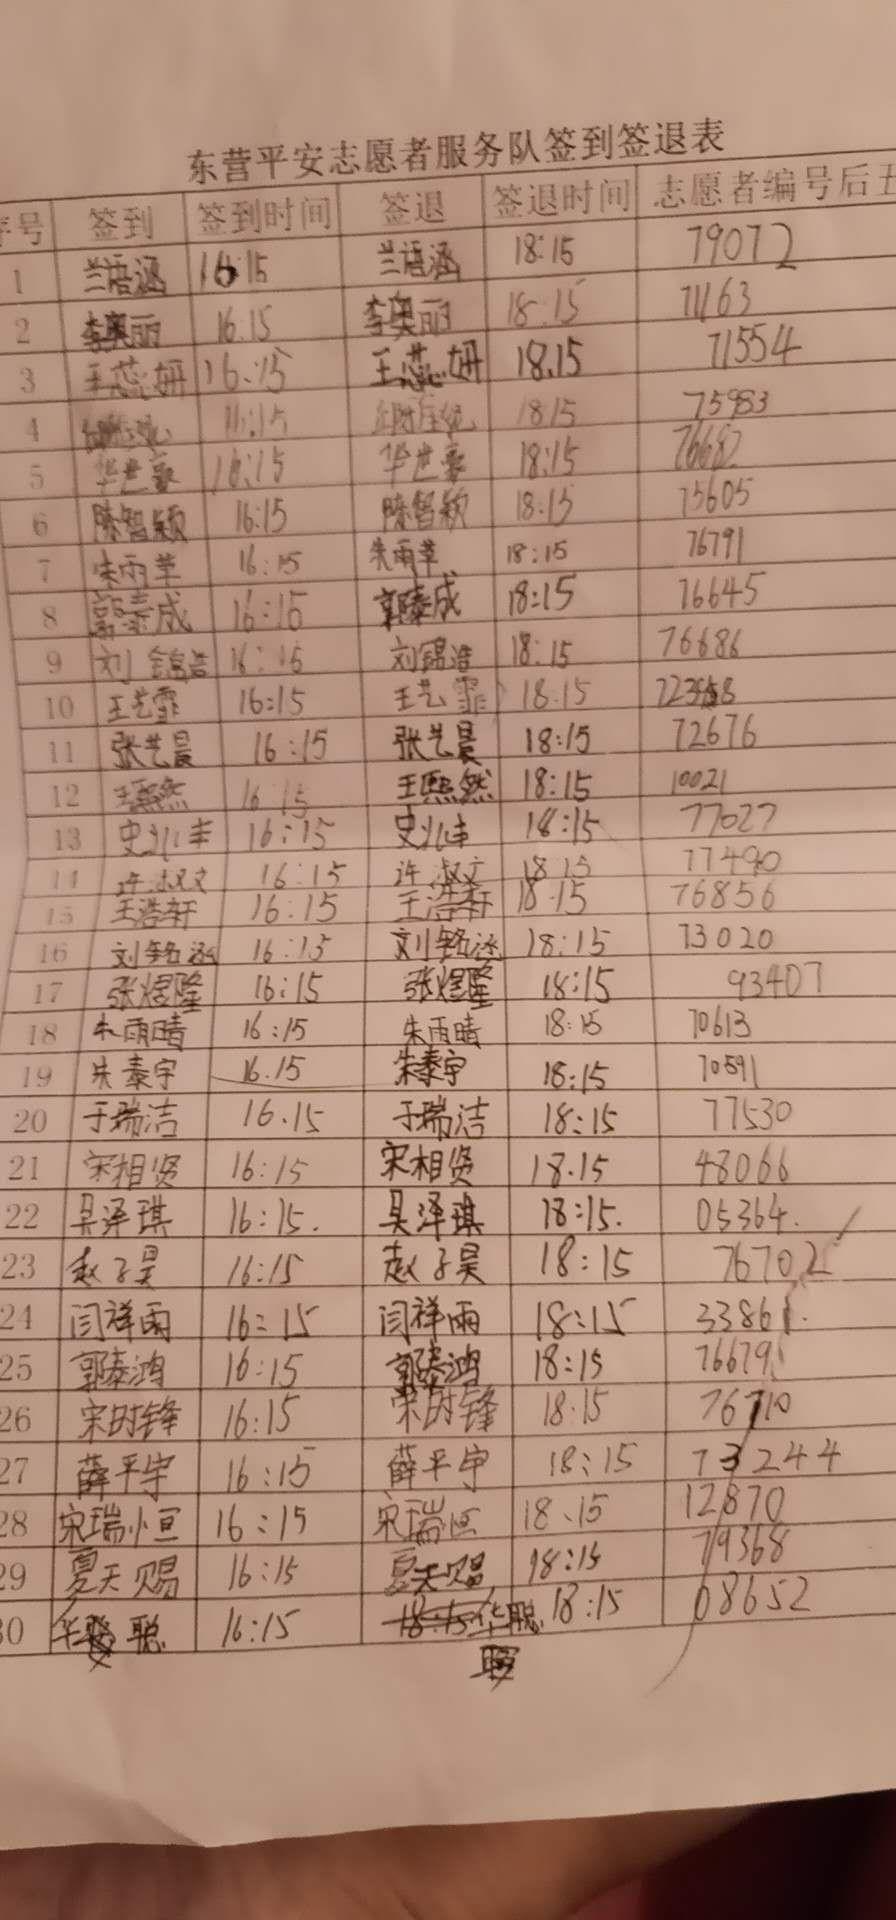 东营平安志愿者服务队签到签退表
序号 签到 签到时间 签退 签退时间 志愿者编号后五
1 兰语涵 16:15 兰语涵 18:15 79072
2 李奥丽 16.15 李奥丽 18:15 71163
3 王蕊妍 16:15 王蕊妍 18.15 71554
4 16:15 18:15 75983
5 华世豪 16:15 华世豪 18:15 76682
6 陈智颖 16:15 陈智颖 18:15 75605
7 朱雨苹 16:15 朱雨苹 18:15 76791
8 郭泰成 16:15 郭泰成 18:15 76645
9 刘锦浩 16:15 刘锦浩 18:15 76686
10 王艺霏 16:15 王艺霏 18.15
11 张艺晨 16:15 张艺晨 18:15 72676
12 王熙然 16:15 王熙然 18:15 10021
13 史兆丰 16:15 史兆丰 18:15 77027
14 许淑文 16:15 许淑文 18:15 77490
15 王浩轩 16:15 王浩轩 18:15 76856
16 刘铭涵 16:15 刘铭涵 18:15 73020
17 张煜隆 16:15 张煜隆 18:15 93407
18 朱雨晴 16:15 朱雨晴 18:15 70613
19 朱泰宇 16.15 朱泰宇 18:15 70591
20 于瑞洁 16.15 于瑞洁 18:15 77530
21 宋相贤 16:15 宋相贤 18.15 48066
22 吴泽琪 16:15. 吴泽琪 18:15. 05364.
23 赵子昊 16:15 赵子昊 18:15 76702
24 闫祥雨 16:15 闫祥雨 18:15 33861.
25 郭泰鸿 16:15 郭泰鸿 18:15 76679
26 宋时锋 16:15 宋时锋 18.15 76710
27 薛平宇 16:15 薛平宇 18:15 73244
28 宋瑞恒 16:15 宋瑞恒 18、15 12870
29 夏天赐 16:15 夏天赐 18:15 79368
30 华聪 16:15 华聪 18:15 08652